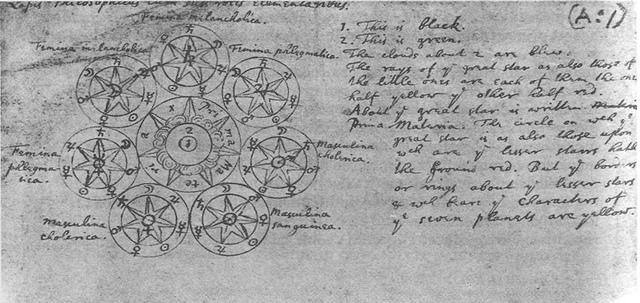 Lapis Philosophicus cum suis rotis elementaribus.
(A:1)
Femina melancholica.
Femina melancholica
Femina phlegmatica
Femina
phlegma
tica.
Masculina
cholerica.
Masculina
cholerica.
Masculina
sanguinea.
Pri
ma
Ma
te
2
1
1. This is black.
2. This is green.
The clouds about 2 are blew.
The rays of yᵉ great star as also those of
the little ones are each of them the one
half yellow yᵉ other half red.
About yᵉ great star is written
Prima Materia. The circle on wch yᵉ
great star is as also those upon
wch are yᵉ lesser starrs hath
the ground red. But yᵉ borders
or rings about yᵉ lesser stars
& wch bear yᵉ characters of
yᵉ seven planets are yellow